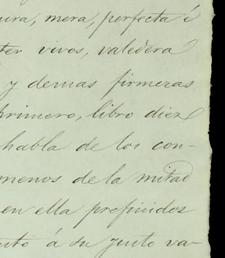 ura, mera, perfecta é
ter vivos, valedera
y demas firmezas
primero, libro diez
habla de los con-
menos de la mitad
en ella prefinidos
á su justo va-